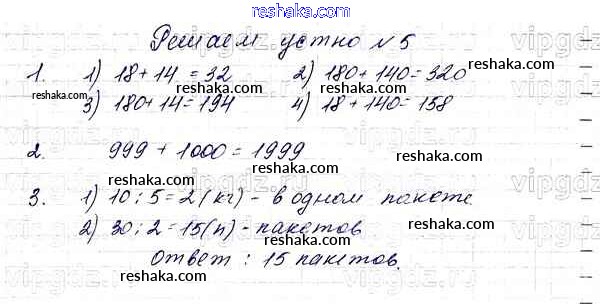 reshaka.com
Решаем устно №5
1. 1) 18+14 = 32 2) 180+140=320
reshaka.com
3) 180+14=194 4) 18+140=158
reshaka.com reshaka.com
2. 999 + 1000 = 1999
reshaka.com
reshaka.com
3. 1) 10:5=2(кг) - в одном пакете
reshaka.com
2) 30:2=15(п) - пакетов
reshaka.com
Ответ: 15 пакетов.
reshaka.com
reshaka.com